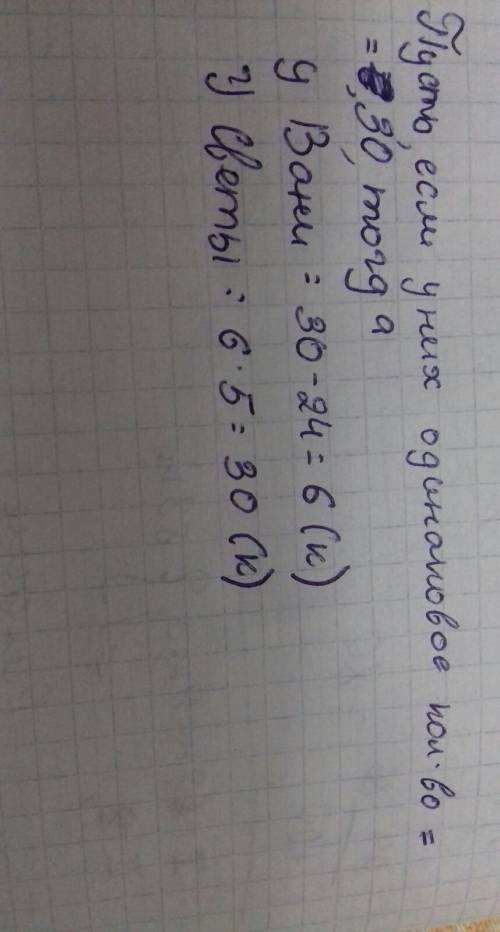 Пусть, если у них одинаковое кол-во =
= 30, тогда
у Вани = 30 - 24 = 6 (к)
у Светы = 6 · 5 = 30 (к)